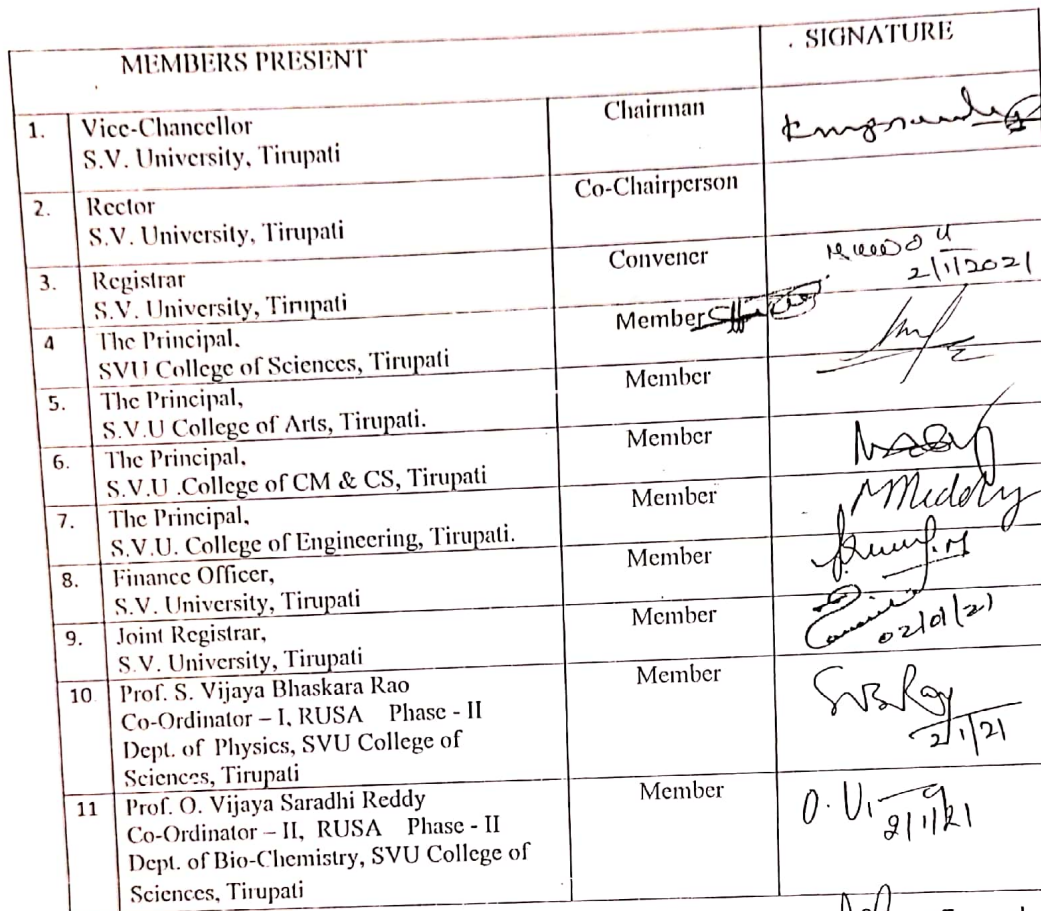 MEMBERS PRESENT
. SIGNATURE
1. Vice-Chancellor
S.V. University, Tirupati
Chairman
2. Rector
S.V. University, Tirupati
Co-Chairperson
3. Registrar
S.V. University, Tirupati
Convener
2/1/2021
4 The Principal.
SVU College of Sciences, Tirupati
Member
5. The Principal,
S.V.U College of Arts, Tirupati.
Member
6. The Principal,
S.V.U .College of CM & CS, Tirupati
Member
7. The Principal,
S.V.U. College of Engineering, Tirupati.
Member
8. Finance Officer,
S.V. University, Tirupati
Member
9. Joint Registrar,
S.V. University, Tirupati
Member
02/01/21
10 Prof. S. Vijaya Bhaskara Rao
Co-Ordinator – I, RUSA Phase - II
Dept. of Physics, SVU College of
Sciences, Tirupati
Member
SVB Rao
2/1/21
11 Prof. O. Vijaya Saradhi Reddy
Co-Ordinator – II, RUSA Phase - II
Dept. of Bio-Chemistry, SVU College of
Sciences, Tirupati
Member
2/1/21